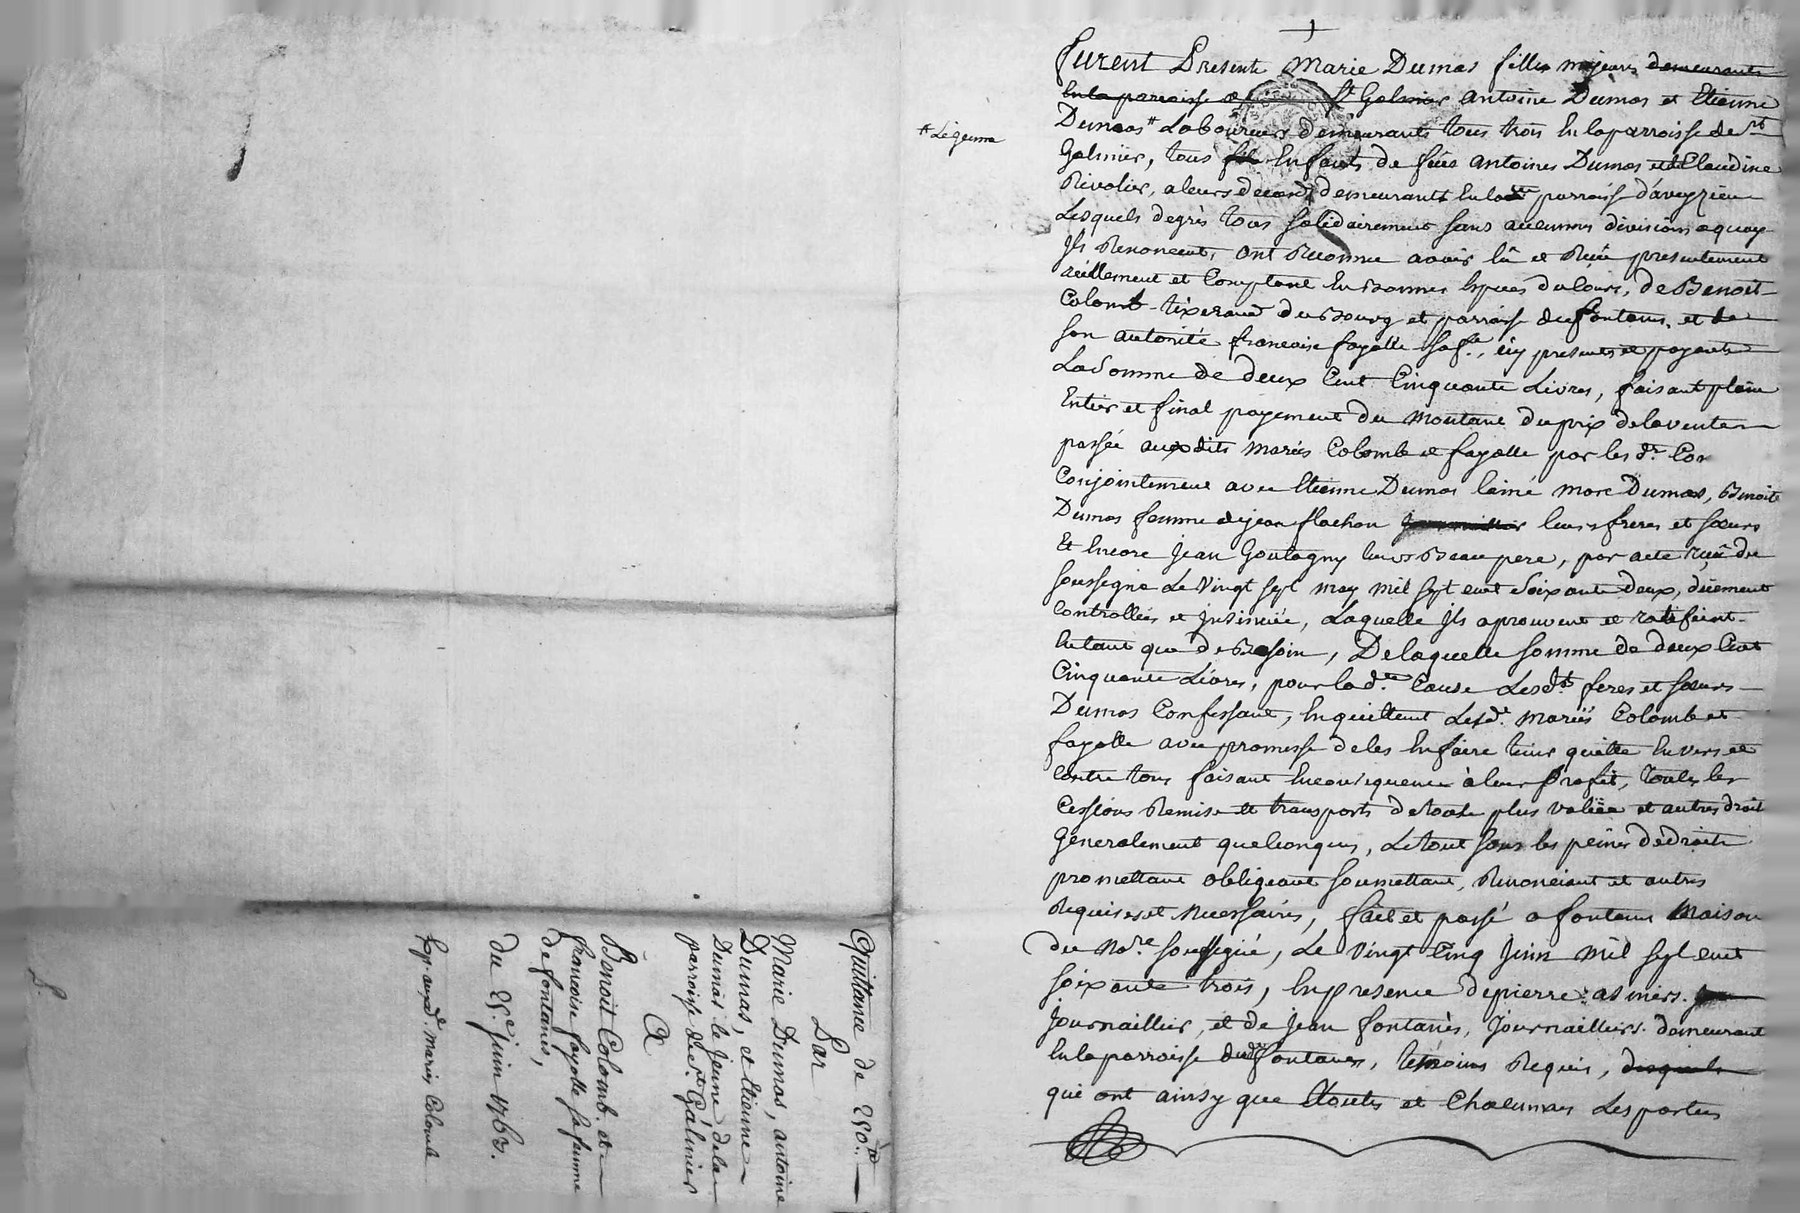 furent Presents Marie Dumas fille majeure demeurante
en la parroisse de St Galmier Antoine Dumas et Etienne
Dumas * Laboureurs demeurants tous trois en la parroisse de St
* Le jeune
Galmier, tous fil Enfants de feus Antoine Dumas et de Claudine
Rivolier, a leurs deceds demeurants en lad. parroisse d'aveyzieu
Lesquels de grès tous solidairement sans aucunne division a quoy
Ils Renoncent, ont Reconnu avoir eu et Reçu presentement
réellement et Comptant en Bonnes Especes du Cours, de Benoit
Colomb tixerand du Bourg et parroisse de fontanes, et de
son autorité francoise fayolle sa fe., icy presents et payants
La Somme de deux Cent Cinquante Livres, faisant plein
Entier et final payement du Montant du prix de la vente
passée auxdits mariés Colomb et fayolle par les d. Con
Conjointement avec Etienne Dumas lainé Marc Dumas, Benoite
Dumas femme de jean flachon leurs freres et sœurs
Et Encore Jean Goutagny leur Beau pere, par acte reçu du
soussigné Le Vingt sept may mil sept cent soixante deux, düement
Controllée et Insinuée, Laquelle Ils aprouvent et ratifient
En tant que de Besoin, De laquelle somme de deux Cent
Cinquante Livres, pour lad.te Cause Lesd.ts feres et sœurs
Dumas Confessant, En quittent Lesd. mariés Colomb et
fayolle avec promesse de les En faire tenir quitte Envers et
Contre tous faisant En consequence à leur Profit, toutes les
Cessions Remise et transports de toute plus valüe et autres droit
Generalement quelconques, Le tout sous les peines de droit
promettant obligeant soumettant, Renonciant et autres
Requises et Necessaires, fait et passé a fontanes Maison
du No.re soussigné, Le Vingt Cinq Juin mil sept cent
soixante trois, En presence de pierre asmiers
Journaillier, et de Jean fontanès, Journailliers demeurant
En la parroisse dud. fontanes, temoins Requis, desquels
qui ont ainsy que Etoutes et Chacunnes Les parties
Quittance de 250.tt
Par
Marie Dumas, antoine
Dumas, et Etienne
Dumas le jeune de la
parroisse de St. Galmier
A
Benoit Colomb et
francoise fayolle sa femme
de fontanes,
du 25.e juin 1763.
Exp. auxd. Mariés Colomb